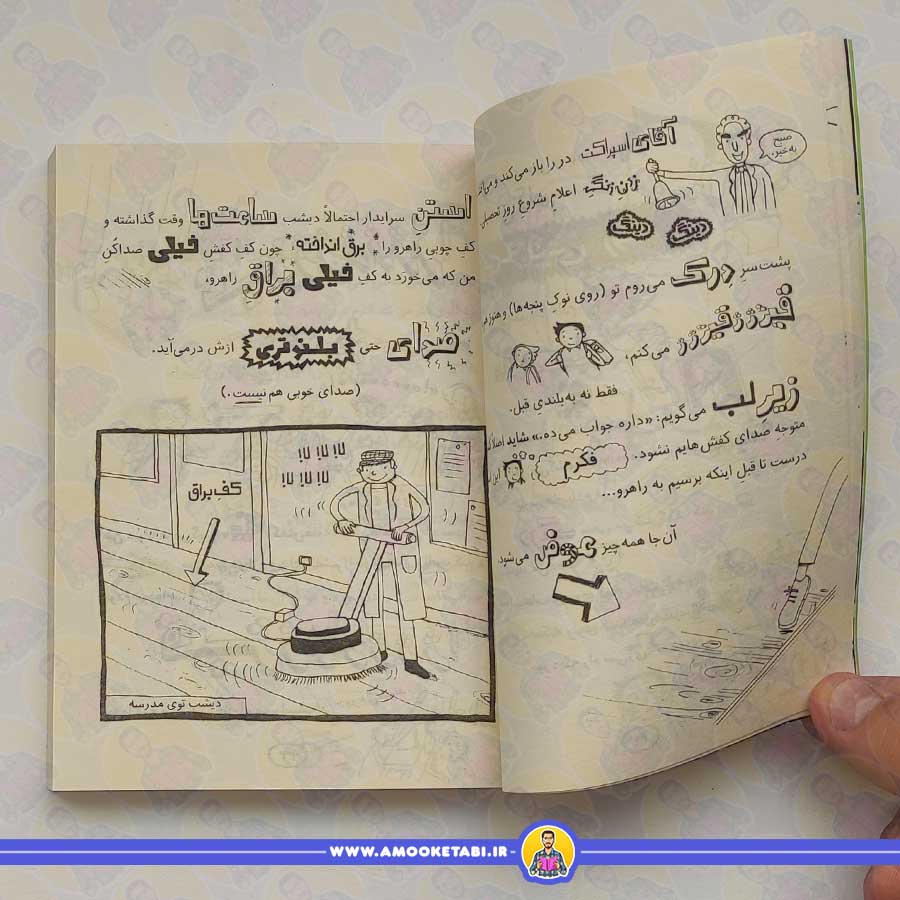 صبح به‌خیر.
آقای اسپراکت در را باز می‌کند و
زدنِ زنگ اعلامِ شروعِ روزِ تحصیلی
دینگ دینگ
پشت سرِ دِرِک می‌روم تو (روی نوکِ پنجه‌ها) و هنوز هم
قیژژژقیژژژ می‌کنم،
فقط نه به‌بلندیِ قبل.
زیرِلب می‌گویم: «داره جواب می‌ده.» شاید اصلاً
متوجهِ صدای کفش‌هایم نشود.
فکرم
این
درست تا قبلِ اینکه برسیم به راهرو...
آن‌جا همه‌چیز عوض می‌شود.
استنِ سرایدار احتمالاً دیشب ساعت‌ها وقت گذاشته و
کفِ چوبیِ راهرو را برق انداخته، چون کفِ کفشِ خیلی صداکُنِ
من که می‌خورَد به کفِ خیلی برّاقِ راهرو،
صدای حتی بلندتری ازش درمی‌آید.
(صدای خوبی هم نیست.)
لا! لا! لا!
لا! لا! لا!
کفِ براق
دیشب توی مدرسه
WWW.AMOOKETABI.IR